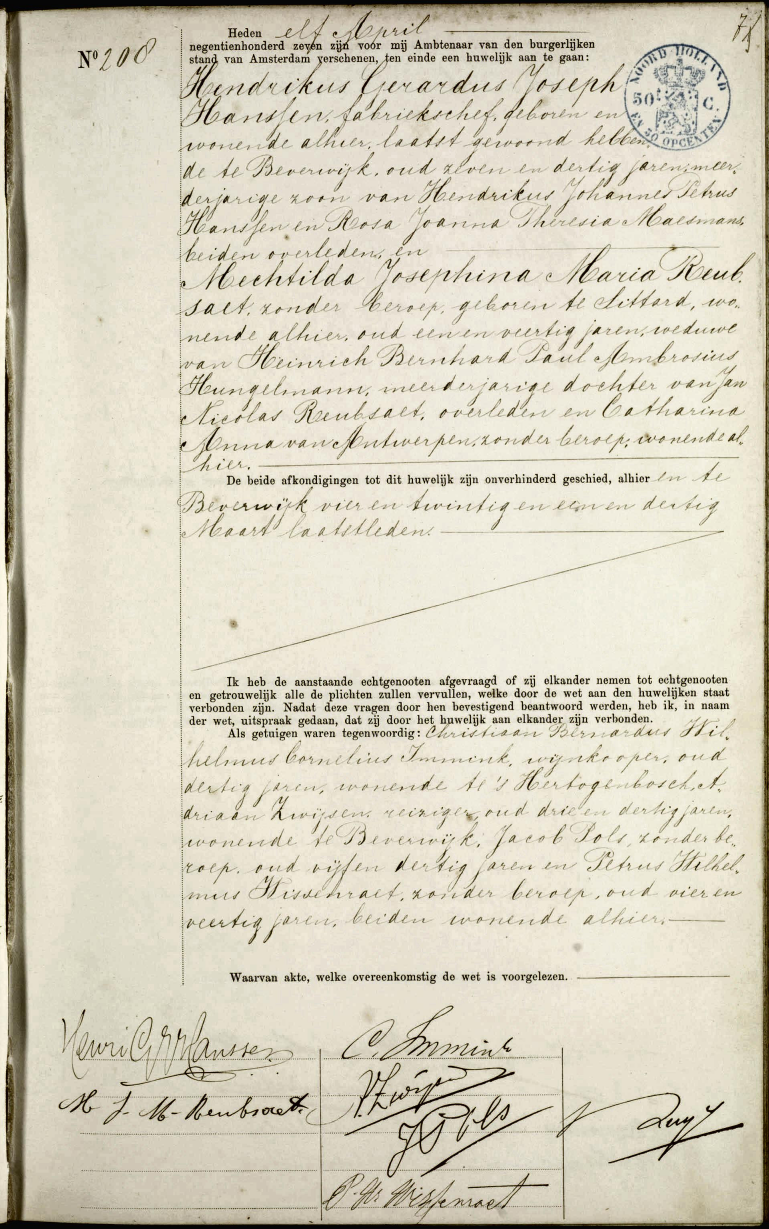 71
Nº 208
Heden elf April
negentienhonderd zeven zijn voor mij Ambtenaar van den burgerlijken
stand van Amsterdam verschenen, ten einde een huwelijk aan te gaan:
NOORD HOLLAND
50 C.
EN 50 OPCENTEN
Hendrikus Gerardus Joseph
Hanssen, fabriekschef, geboren en
wonende alhier, laatst gewoond hebben,
de te Beverwijk, oud zeven en dertig jaren, meer,
derjarige zoon van Hendrikus Johannes Petrus
Hanssen en Rosa Joanna Theresia Maesmans,
beiden overleden, en
Mechtilda Josephina Maria Reub,
saet, zonder beroep, geboren te Sittard, wo,
nende alhier, oud een en veertig jaren, weduwe
van Heinrich Bernhard Paul Ambrosius
Hungelmann, meerderjarige dochter van Jan
Nicolas Reubsaet, overleden en Catharina
Anna van Antwerpen, zonder beroep, wonende al,
hier.
De beide afkondigingen tot dit huwelijk zijn onverhinderd geschied, alhier en te
Beverwijk vier en twintig en een en dertig
Maart laatstleden.
Ik heb de aanstaande echtgenooten afgevraagd of zij elkander nemen tot echtgenooten
en getrouwelijk alle de plichten zullen vervullen, welke door de wet aan den huwelijken staat
verbonden zijn. Nadat deze vragen door hen bevestigend beantwoord werden, heb ik, in naam
der wet, uitspraak gedaan, dat zij door het huwelijk aan elkander zijn verbonden.
Als getuigen waren tegenwoordig: Christiaan Bernardus Wil,
helmus Cornelius Immink, wijnkooper, oud
dertig jaren, wonende te 's Hertogenbosch, A,
driaan Zwijsen, reiziger, oud drie en dertig jaren,
wonende te Beverwijk, Jacob Pols, zonder be,
roep, oud vijf en dertig jaren en Petrus Wilhel,
mus Wissenraet, zonder beroep, oud vier en
veertig jaren, beiden wonende alhier.
Waarvan akte, welke overeenkomstig de wet is voorgelezen.
Henri G J Hanssen
C. Immink
M J M Reubsaet
A Zwijsen
J Pols
P. W. Wissenraet